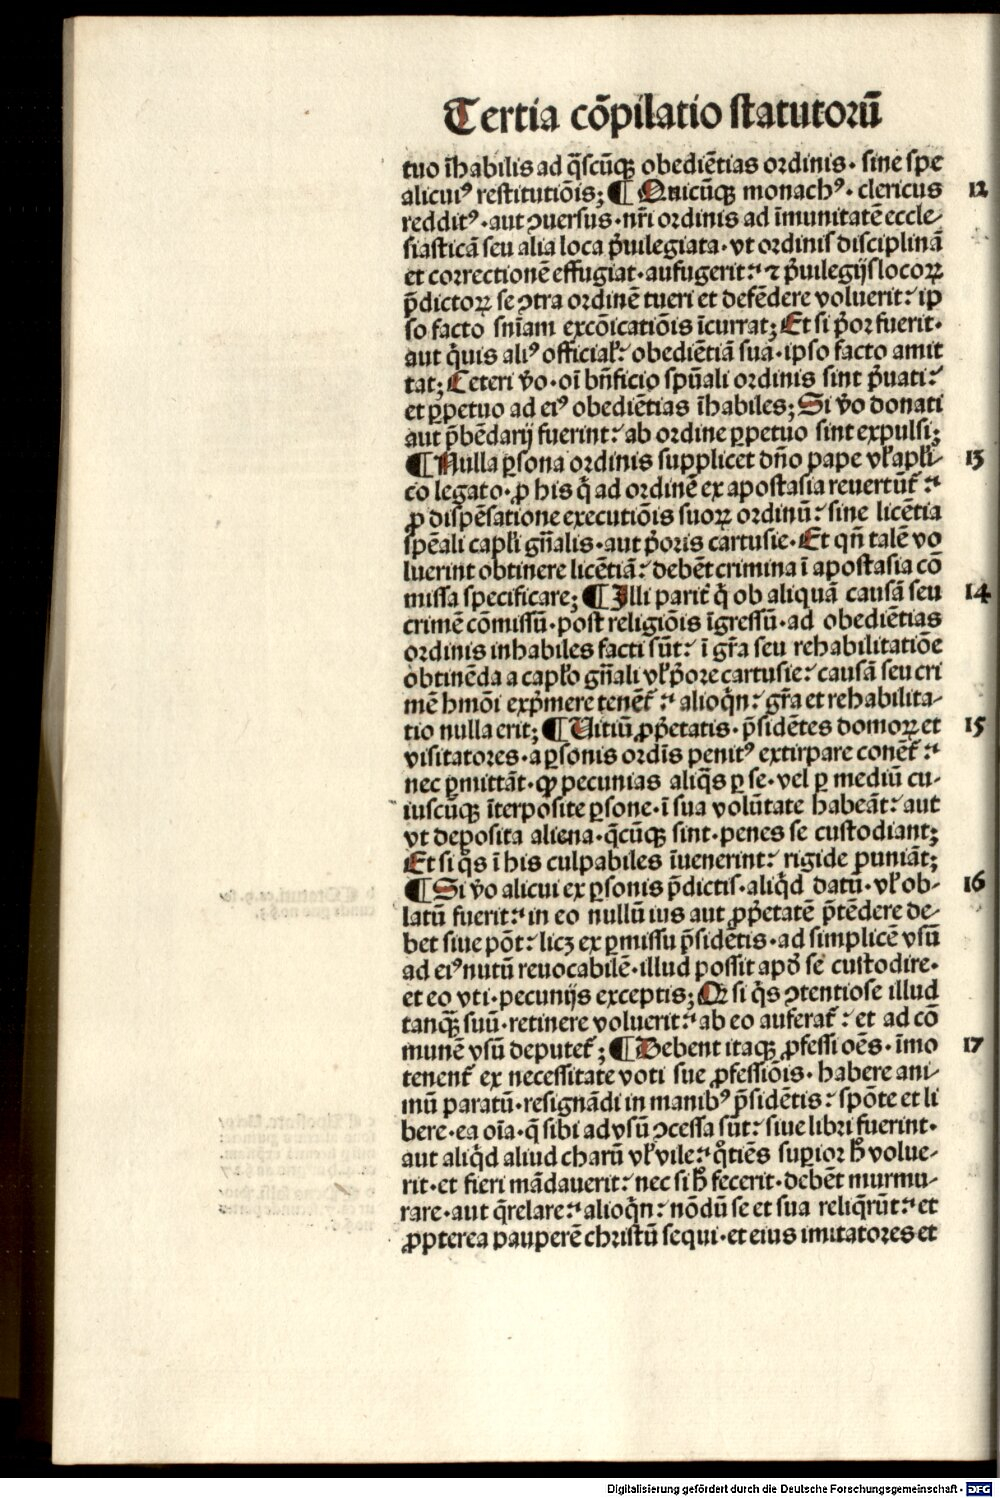 Tertia cōpilatio statutoꝝ
tuo īhabilis ad q̄scūqꝫ obediētias ordinis· sine spe
alicuiꝰ restitutiōis; ¶ Quicūqꝫ monachꝰ· clericus 12
redditꝰ· aut ꝯuersus· nr̄i ordinis ad īmunitatē eccle-
siasticā seu alia loca p̄uilegiata· vt ordinis disciplinā
et correctionē effugiat· aufugerit: ⁊ p̄uilegijs locoꝝ
p̄dictoꝝ se ꝯtra ordinē tueri et defēdere voluerit: ip
so facto sn̄iam excōicatiōis īcurrat; Et si p̄or fuerit·
aut q̄uis aliꝰ official̕: obediētiā suā· ipso facto amit
tat; Ceteri v̄o· oī bn̄ficio spūali ordinis sint p̄uati:
et ꝑpetuo ad eiꝰ obediētias īhabiles; Si v̄o donati
aut p̄bēdarij fuerint: ab ordine ꝑpetuo sint expulsi;
¶ Nulla ꝑsona ordinis supplicet dn̄o pape vl̕ apl̄i- 13
co legato· ꝓ his q̄ ad ordinē ex apostasia reuertūt̄:
ꝓ dispēsatione executiōis suoꝝ ordinū: sine licētia
spēali capl̄i gn̄alis· aut p̄oris cartusie· Et qn̄ talē vo
luerint obtinere licētiā: debēt crimina ī apostasia cō
missa specificare; ¶ Illi parit̄ q̄ ob aliquā causā seu 14
crimē cōmissū· post religiōis īgressū· ad obediētias
ordinis inhabiles facti sūt: ī gr̄a seu rehabilitatiōe
obtinēda a capl̄o gn̄ali vl̕ p̄ore cartusie: causā seu cri
mē hmōi exp̄mere tenēt̄: alioq̄n: gr̄a et rehabilita-
tio nulla erit; ¶ Uitiū ꝓp̄etatis· p̄sidētes domoꝝ et 15
visitatores· a ꝑsonis ordīs penitꝰ extirpare conēt̄:
nec ꝑmittāt· ꝙ pecunias aliq̄s ꝑ se· vel ꝑ mediū cu-
iuscūqꝫ īterposite ꝑsone· ī sua volūtate habeāt: aut
vt deposita aliena· q̄cūqꝫ sint· penes se custodiant;
Et si q̄s ī his culpabiles īuenerint: rigide puniāt;
¶ Si v̄o alicui ex ꝑsonis p̄dictis· aliq̄d datū· vl̕ ob- 16
latū fuerit: in eo nullū ius aut ꝓp̄etatē p̄tēdere de-
bet siue pōt: licꝫ ex ꝑmissu p̄sidētis· ad simplicē vsū
ad eiꝰ nutū reuocabilē· illud possit apd̄ se custodire·
et eo vti· pecunijs exceptis; Qꝛ si q̄s ꝯtentiose illud
tanqꝫ suū· retinere voluerit: ab eo auferat̄: et ad cō
munē vsū deputet̄; ¶ Debent itaqꝫ ꝓfessi oēs· īmo 17
tenent̄ ex necessitate voti sue ꝓfessiōis· habere ani-
mū paratū· resignādi in manibꝰ p̄sidētis: spōte et li
bere· ea oīa· q̄ sibi ad vsū ꝯcessa sūt: siue libri fuerint·
aut aliq̄d aliud charū vl̕ vile: q̄tiēs superior h̄ volue-
rit· et fieri mādauerit: nec si h̄ fecerit· debēt murmu-
rare· aut q̄relare: alioq̄n: nōdū se et sua reliq̄rūt: et
ꝓpterea pauperē christū sequi· et eius imitatores et
Digitalisierung gefördert durch die Deutsche Forschungsgemeinschaft - DFG